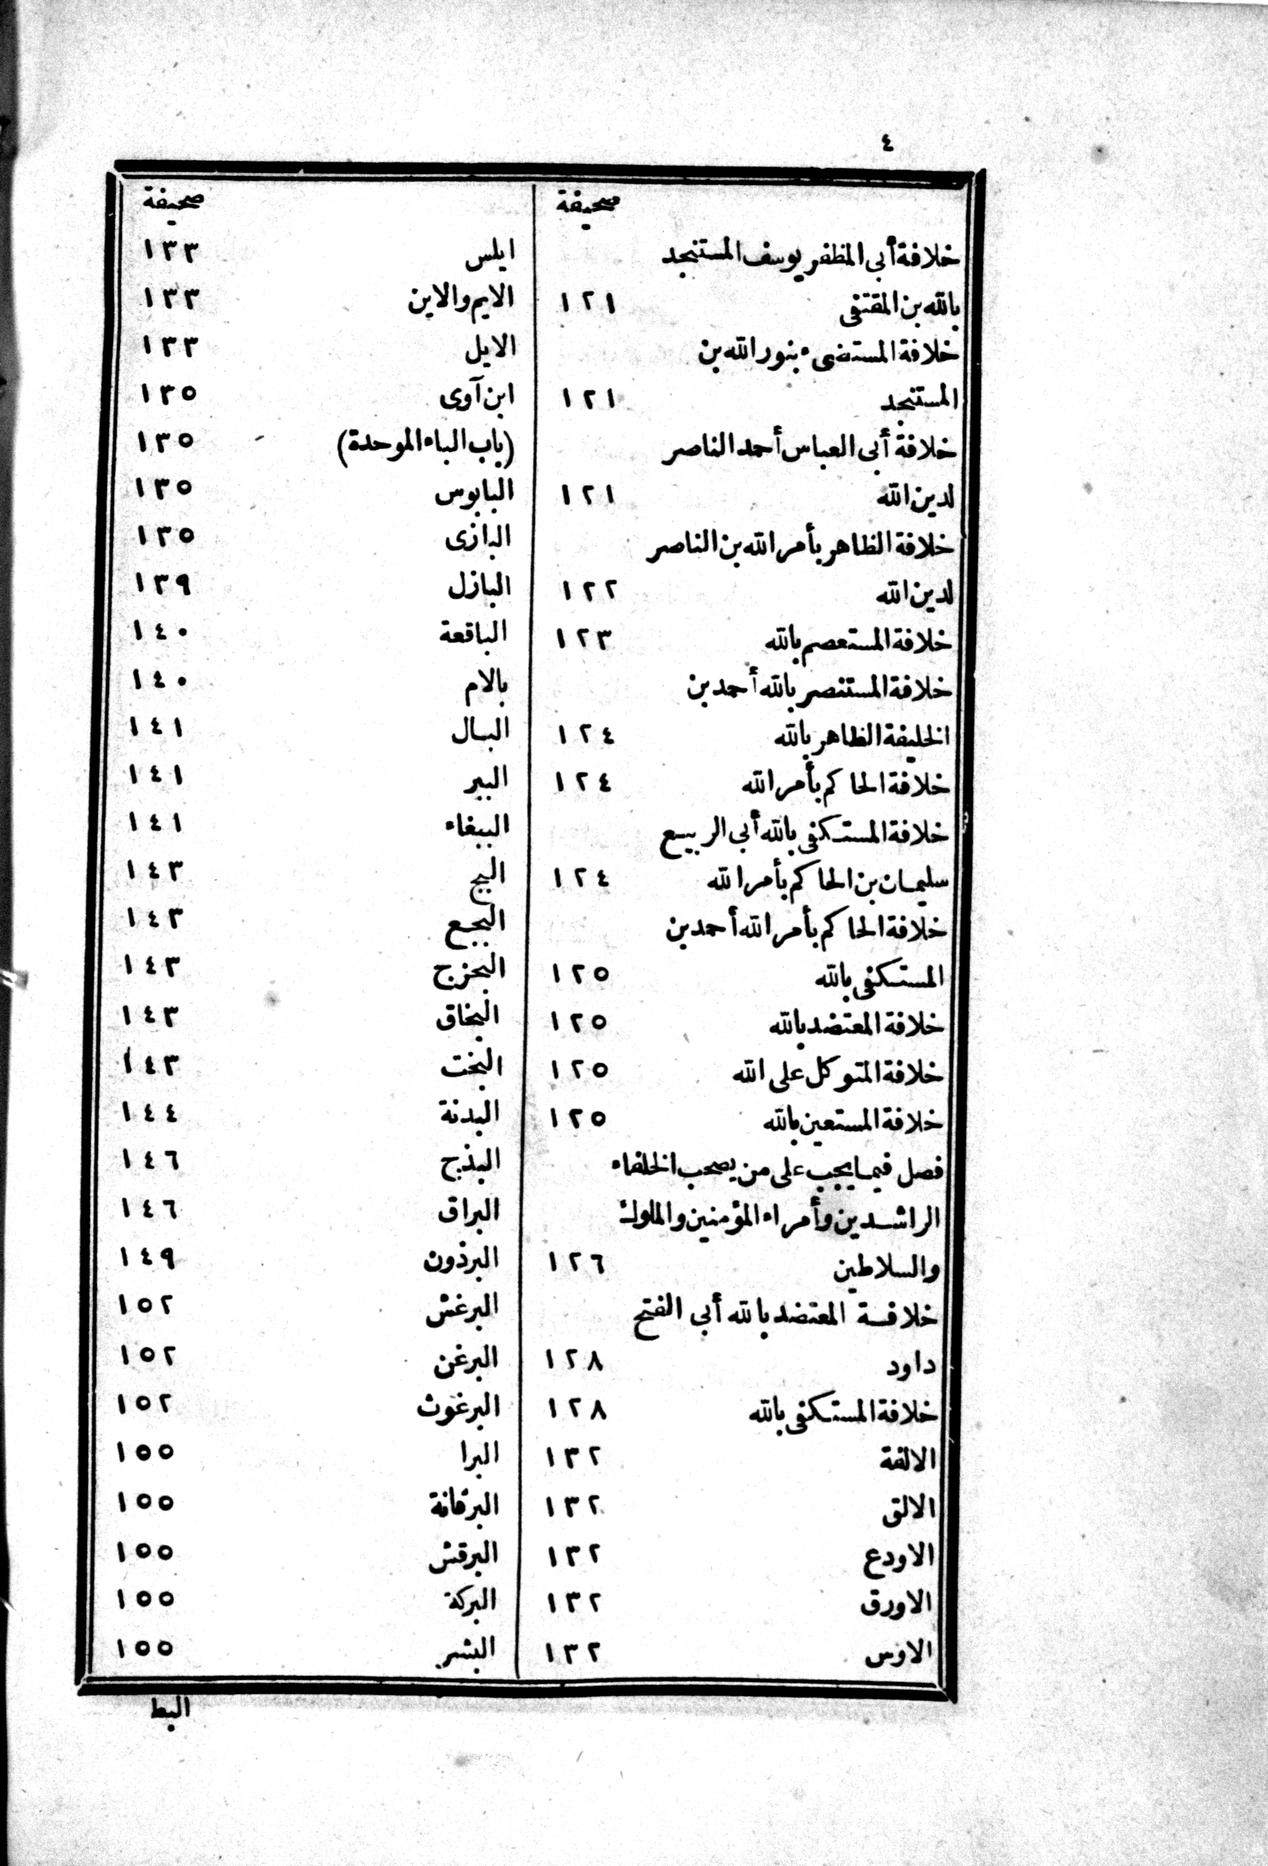 ٤
صحيفة
خلافة أبى المظفر يوسف المستنجد
بالله بن المقتفى ١٢١
خلافة المستضىء بنور الله بن
المستنجد ١٢١
خلافة أبى العباس أحمد الناصر
لدين الله ١٢١
خلافة الظاهر بأمر الله بن الناصر
لدين الله ١٢٢
خلافة المستعصم بالله ١٢٣
خلافة المستنصر بالله أحمد بن
الخليفة الظاهر بالله ١٢٤
خلافة الحاكم بأمر الله ١٢٤
خلافة المستكفى بالله أبى الربيع
سليمان بن الحاكم بأمر الله ١٢٤
خلافة الحاكم بأمر الله أحمد بن
المستكفى بالله ١٢٥
خلافة المعتضد بالله ١٢٥
خلافة المتوكل على الله ١٢٥
خلافة المستعين بالله ١٢٥
فصل فيما يجب على من يصحب الخلفاء
الراشدين وأمراء المؤمنين والملوك
والسلاطين ١٢٦
خلافة المعتضد بالله أبى الفتح
داود ١٢٨
خلافة المستكفى بالله ١٢٨
الالفة ١٣٢
الالق ١٣٢
الاودع ١٣٢
الاورق ١٣٢
الاوس ١٣٢
صحيفة
ايلس ١٣٣
الايم والاين ١٣٣
الايل ١٣٣
ابن آوى ١٣٥
(باب الباء الموحدة) ١٣٥
البابوس ١٣٥
البازى ١٣٥
البازل ١٣٩
الباقعة ١٤٠
بالام ١٤٠
البال ١٤١
الببر ١٤١
الببغاء ١٤١
البج ١٤٣
البجع ١٤٣
البحزج ١٤٣
البخاق ١٤٣
البخت ١٤٣
البدنة ١٤٤
البذج ١٤٦
البراق ١٤٦
البرذون ١٤٩
البرغش ١٥٢
البرغن ١٥٢
البرغوث ١٥٢
البرا ١٥٥
البرقانة ١٥٥
البرقش ١٥٥
البركة ١٥٥
البشر ١٥٥
البط